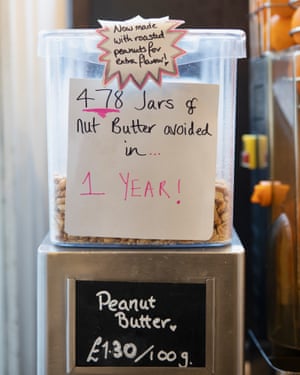 Now made
with roasted
peanuts for
extra flavour!
478 Jars of
nut Butter avoided
in...
1 YEAR!
Peanut
Butter
£1.30/100g.